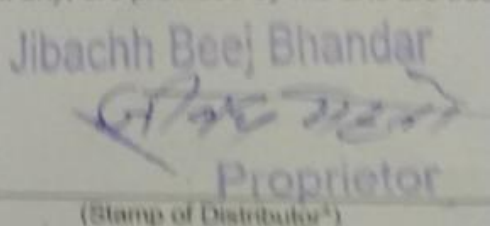 Jibachh Beej Bhandar
Proprietor
(Stamp of Distributor*)